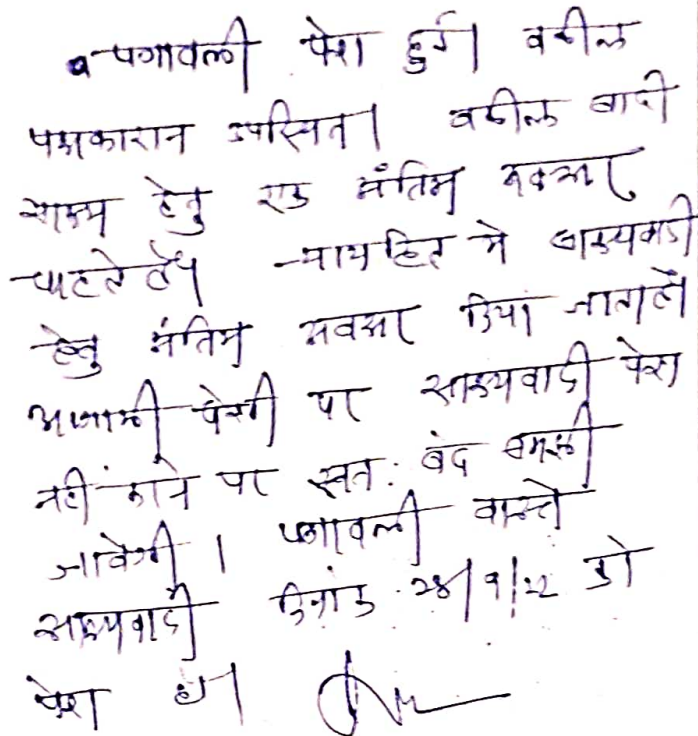 पत्रावली पेश हुई। वकील
पक्षकारान उपस्थित। वकील वादी
साक्ष्य हेतु एक अंतिम अवसर
चाहते है। न्यायहित मे साक्ष्यवादी
हेतु अंतिम अवसर दिया जाता है
आगामी पेशी पर साक्ष्यवादी पेश
नही करने पर स्वत: बंद समझी
जावेगी। पत्रावली वास्ते
साक्ष्यवादी दिनांक 28/9/22 को
पेश हो।